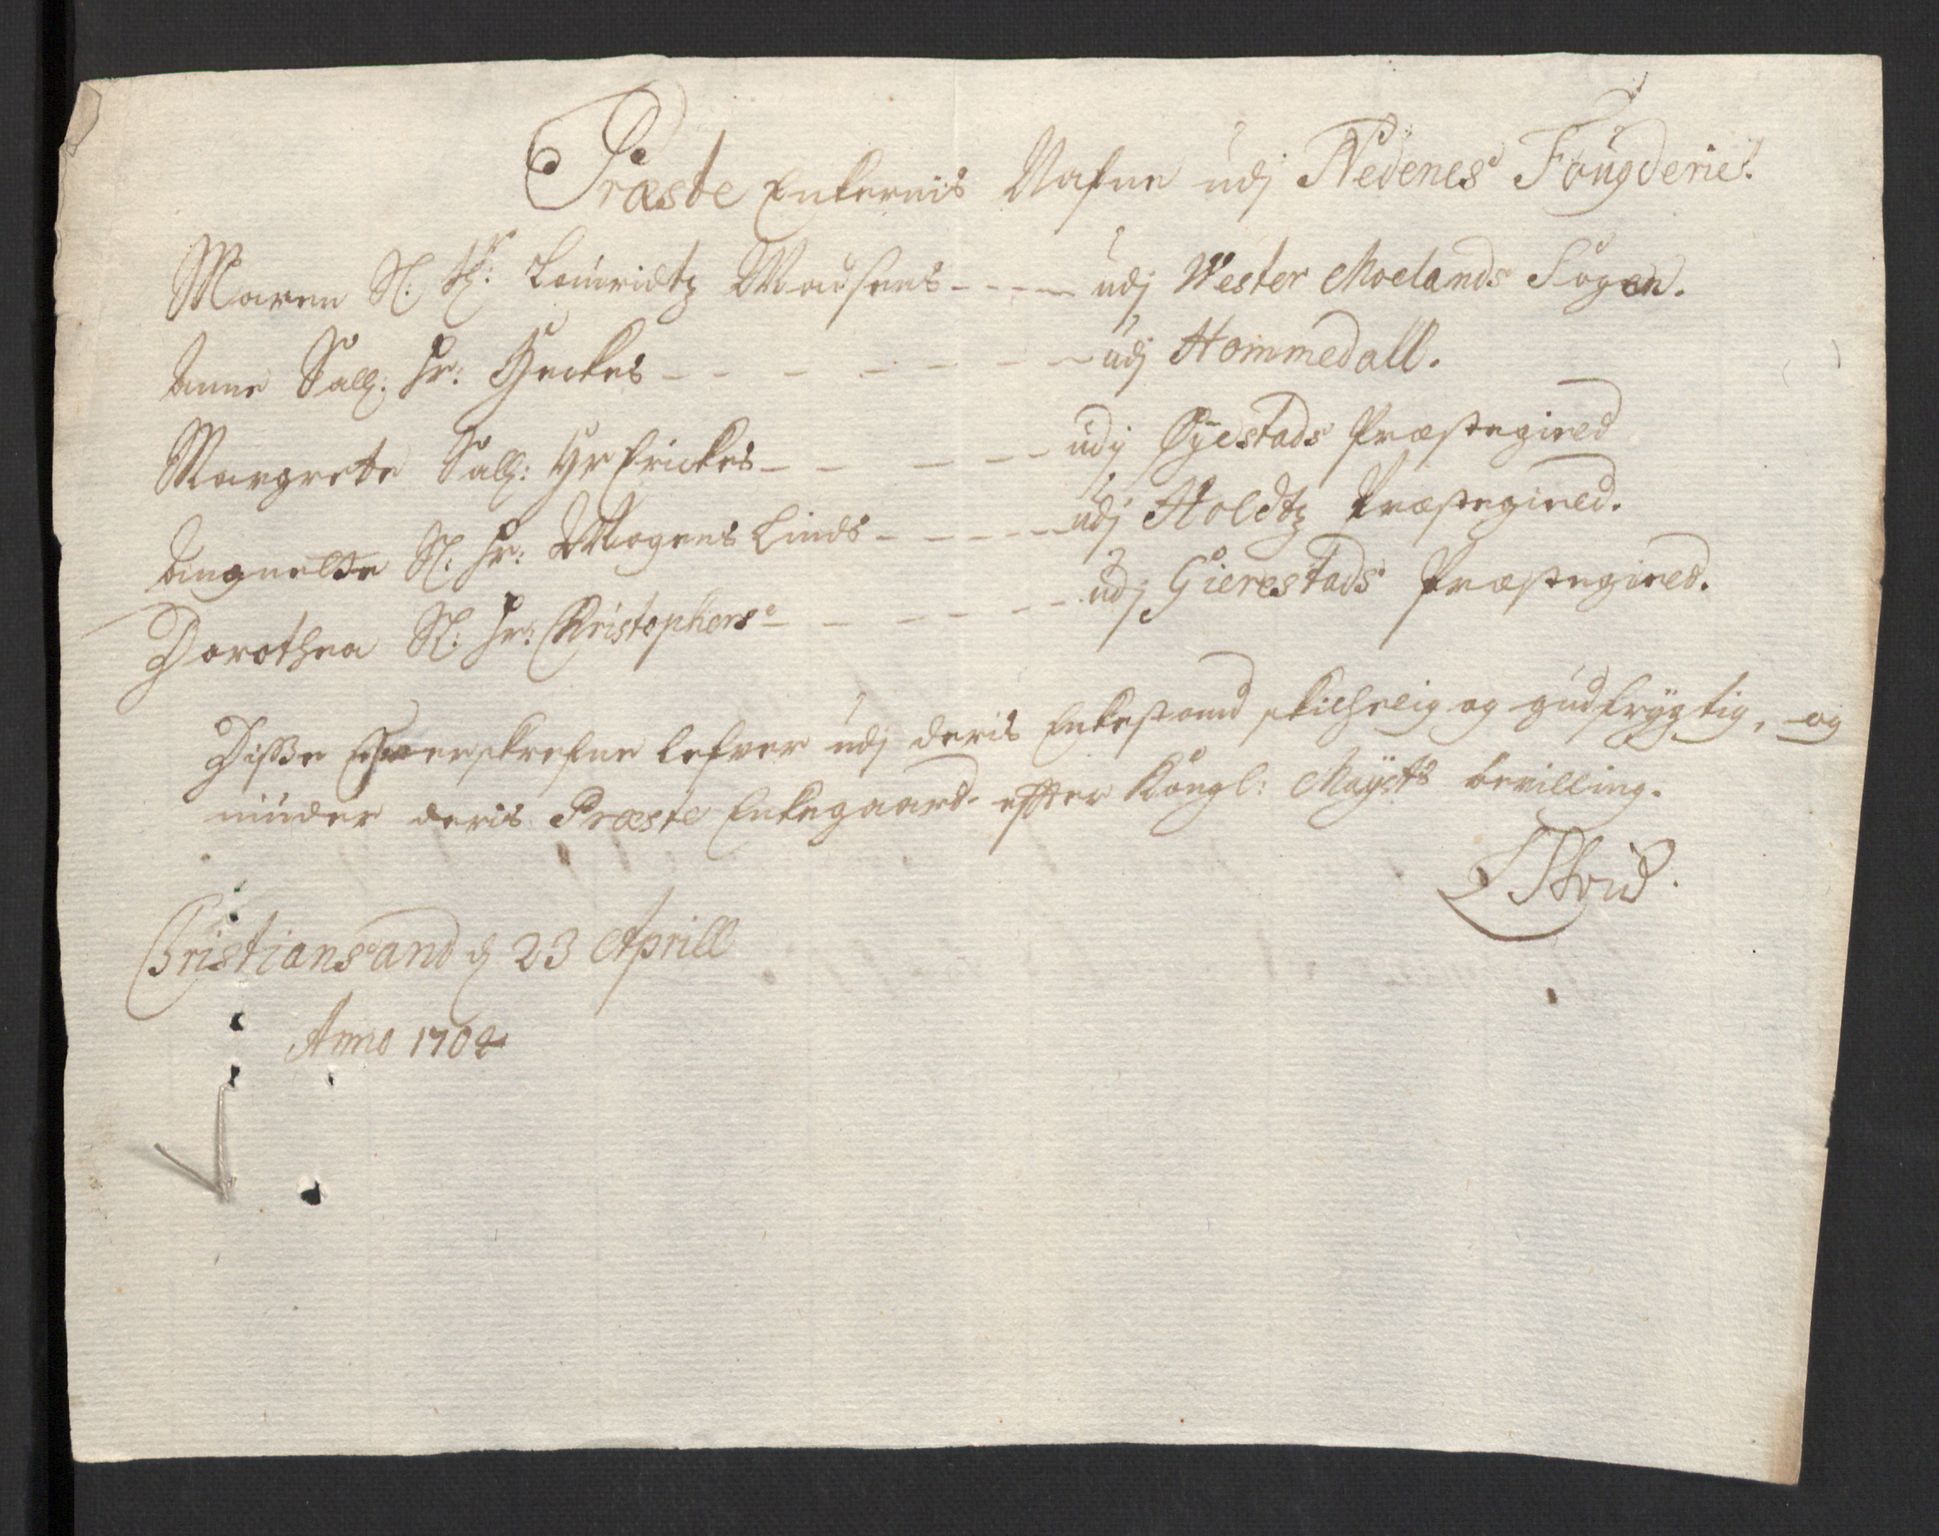 Præste Enkernis Nafne udj Nedenes Fougderie.
Maren Sl. Hr: Lauridtz Madsens - - - - udj Wester Moelands Sogen.
Anne Sall: Hr: Gerkes - - - - - - - udj Hommedall.
Margrete Sall: Hr Erickes - - - - - udj Øyestads Præstegired
Angnette Sl: Hr: Mogens Linds - - - - - udj Holdtz Præstegired.
Dorothea Sl: Hr: Christophers - - - - - - udj Gierestads Præstegired.
Disse Efverskrefne lefver udj deris Enkestand skichelig og gudfrygtig, og
niuder deris Præste Enkegaard efter Kongl: Mayst:s bevilling.
Christiansand d 23 Aprill
Anno 1702